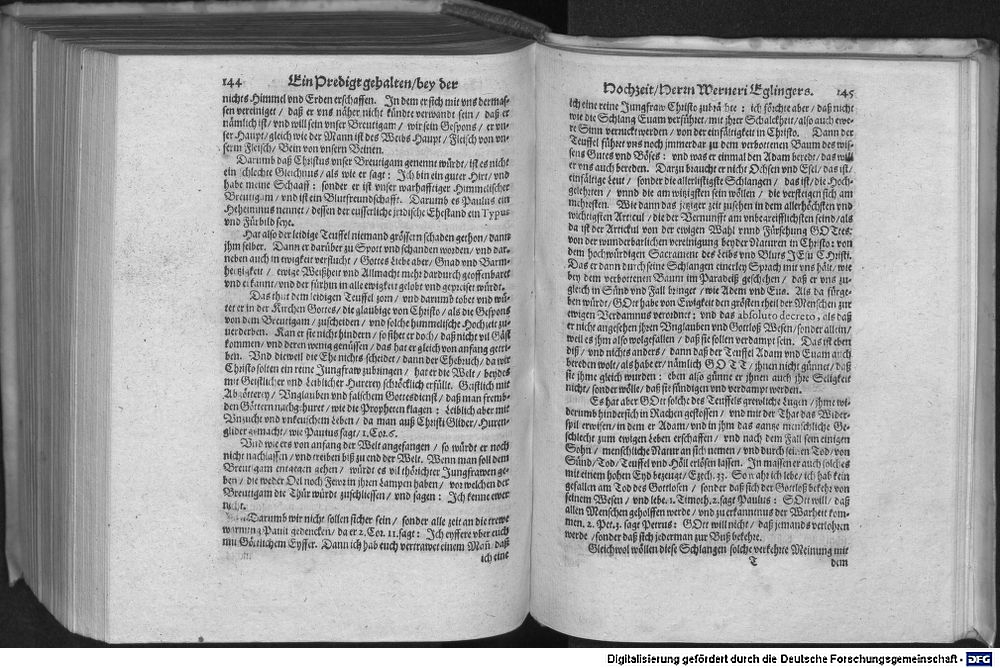 144 Ein Predigt gehalten/bey der
nichts Himmel vnd Erden erschaffen. In dem er sich mit vns dermas-
sen vereiniget / daß er vns näher nicht kündte verwandt sein / daß er
nämlich ist/ vnd will sein vnser Breutigam / wir sein Gespons / er vn-
ser Haupt/gleich wie der Mann ist des Weibs Haupt / Fleisch von vn-
serm Fleisch / Bein von vnsern Beinen.
Darumb daß Christus vnser Breutigam genennt würdt/ ist es nicht
ein schlechte Gleichnus/ als wie er sagt: Ich bin ein guter Hirt/ vnd
habe meine Schaaff: sonder er ist vnser warhafftiger Himmelischer
Breutigam / vnd ist ein Blutsfreundschafft. Darumb es Paulus ein
Geheimnus nennet / dessen der eusserliche jrdische Ehestand ein Typus
vnd Fürbild seye.
Hat also der leidige Teuffel niemand grössern schaden gethon/ dann
jhm selber. Dann er darüber zu Spott vnd schanden worden/ vnd dar-
neben auch in ewigkeit verflucht / Gottes Liebe aber/ Gnad vnd Barm-
hertzigkeit / ewige Weißheit vnd Allmacht mehr dardurch geoffenbaret
vnd erkannt/ vnd der fürhin in alle ewigkeit gelobt vnd gepreiset würdt.
Das thut dem leidigen Teuffel zorn / vnd darumb tobet vnd wü-
tet er in der Kirchen Gottes/ die glaubige von Christo/ als die Gespons
von dem Breutigam/ zuscheiden / vnd solche himmelische Hochzeit zu-
uerderben. Kan er sie nicht hindern/ so sihet er doch/ daß nicht vil Gäst
kommen/ vnd deren wenig genüssen/ das hat er gleich von anfang getri-
ben. Vnd dieweil die Ehe nichts scheidet / dann der Ehebruch/ da wir
Christo solten ein reine Jungfraw zubringen / hat er die Welt / beydes
mit Geistlicher vnd Leiblicher Hurerey schröcklich erfüllt. Geistlich mit
Abgötterey / Vnglauben vnd falschem Gottesdienst / daß man fremb-
den Göttern nachgehuret / wie die Propheten klagen: Leiblich aber mit
Vnzucht vnd vnkeuschem Leben / da man auß Christi Glider/ Huren-
glider gemacht/ wie Paulus sagt/ 1. Cor. 6.
Vnd wie ers von anfang der Welt angefangen / so würdt er noch
nicht nachlassen/ vnd treiben biß zu end der Welt. Wenn man soll dem
Breutigam entgegen gehen / würdt es vil thörichter Jungfrawen ge-
ben / die weder Oel noch Fewr in jhren Lampen haben / vor welchen der
Breutigam die Thür würdt zuschliessen / vnd sagen: Ich kenne ewer
nicht.
Darumb wir nicht sollen sicher sein / sonder alle zeit an die trewe
warnung Pauli gedencken/ da er 2. Cor. 11. sagt: Ich eyffere vber euch
mit Göttlichem Eyffer. Dann ich hab euch vertrawet einem Mañ/ daß
ich eine
Hochzeit/Herrn Werneri Eglingers. 145
ich eine reine Jungfraw Christo zubrächte: ich förchte aber / daß nicht
wie die Schlang Euam verführet/ mit jhrer Schalckheit/ also auch ewe-
re Sinn verruckt werden / von der einfältigkeit in Christo. Dann der
Teuffel führet vns noch jmmerdar zu dem verbottenen Baum des wis-
sens Gutes vnd Böses: vnd was er einmal den Adam beredt/ das will
er vns auch bereden. Darzu braucht er nicht Ochsen vnd Esel/ das ist/
einfältige Leut / sonder die allerlistigste Schlangen / das ist/ die Hoch-
gelehrten / vnnd die am witzigsten sein wöllen / die versteigen sich am
mehresten. Wie dann das jetziger zeit zusehen in dem allerhöchsten vnd
wichtigsten Articul / die der Vernunfft am vnbegreifflichsten seind/ als
da ist der Artickul von der ewigen Wahl vnnd Fürsehung GOTtes:
von der wunderbarlichen vereinigung beyder Naturen in Christo: von
dem hochwürdigen Sacrament des Leibs vnd Bluts JEsu CHristi.
Das er dann durch seine Schlangen einerley Sprach mit vns hält/ wie
bey dem verbottenen Baum im Paradeiß geschehen / daß er vns zu-
gleich in Sünd vnd Fall bringet / wie Adem vnd Eua. Als da fürge-
ben würdt/ GOtt habe von Ewigkeit den grösten theil der Menschen zur
ewigen Verdamnus verordnet: vnd das absoluto decreto, als daß
er nicht angesehen jhren Vnglauben vnd Gottloß Wesen/ sonder allein/
weil es jhm also wolgefallen / daß sie sollen verdampt sein. Das ist eben
diß / vnd nichts anders / dann daß der Teuffel Adam vnd Euam auch
bereden wolt/ als habe er / nämlich GOTT / jhnen nicht günnet / daß
sie jhme gleich wurden: eben also günne er jhnen auch jhre Seligkeit
nicht/ sonder wölle / daß sie sündigen vnd verdampt werden.
Es hat aber GOtt solche des Teuffels grewliche Lugen / jhme wi-
derumb hindersich in Rachen gestossen / vnd mit der That das Wider-
spil erwisen/ in dem er Adam/ vnd in jhm das gantze menschliche Ge-
schlecht zum ewigen Leben erschaffen / vnd nach dem Fall sein einigen
Sohn / menschliche Natur an sich nemen / vnd durch seinen Tod/ von
Sünd/ Tod/ Teuffel vnd Höll erlösen lassen. In massen er auch solches
mit einem hohen Eyd bezeugt/ Ezech. 33. So wahr ich lebe/ ich hab kein
gefallen am Tod des Gottlosen / sonder daß sich der Gottloß bekehr von
seinem Wesen / vnd lebe. 1. Timoth. 2. sagt Paulus: GOtt will / daß
allen Menschen geholffen werde / vnd zu erkanntnus der Warheit kom-
men. 2. Pet. 3. sagt Petrus: GOtt will nicht / daß jemands verlohren
werde / sonder daß sich jederman zur Buß bekehre.
Gleichwol wöllen diese Schlangen solche verkehrte Meinung mit
T dem
Digitalisierung gefördert durch die Deutsche Forschungsgemeinschaft - DFG